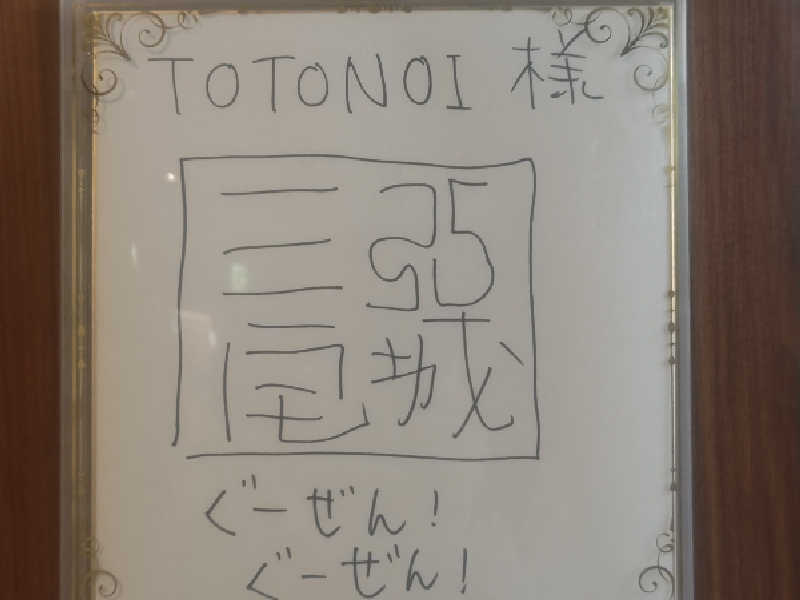 TOTONOI 様
ぐーぜん!
ぐーぜん!